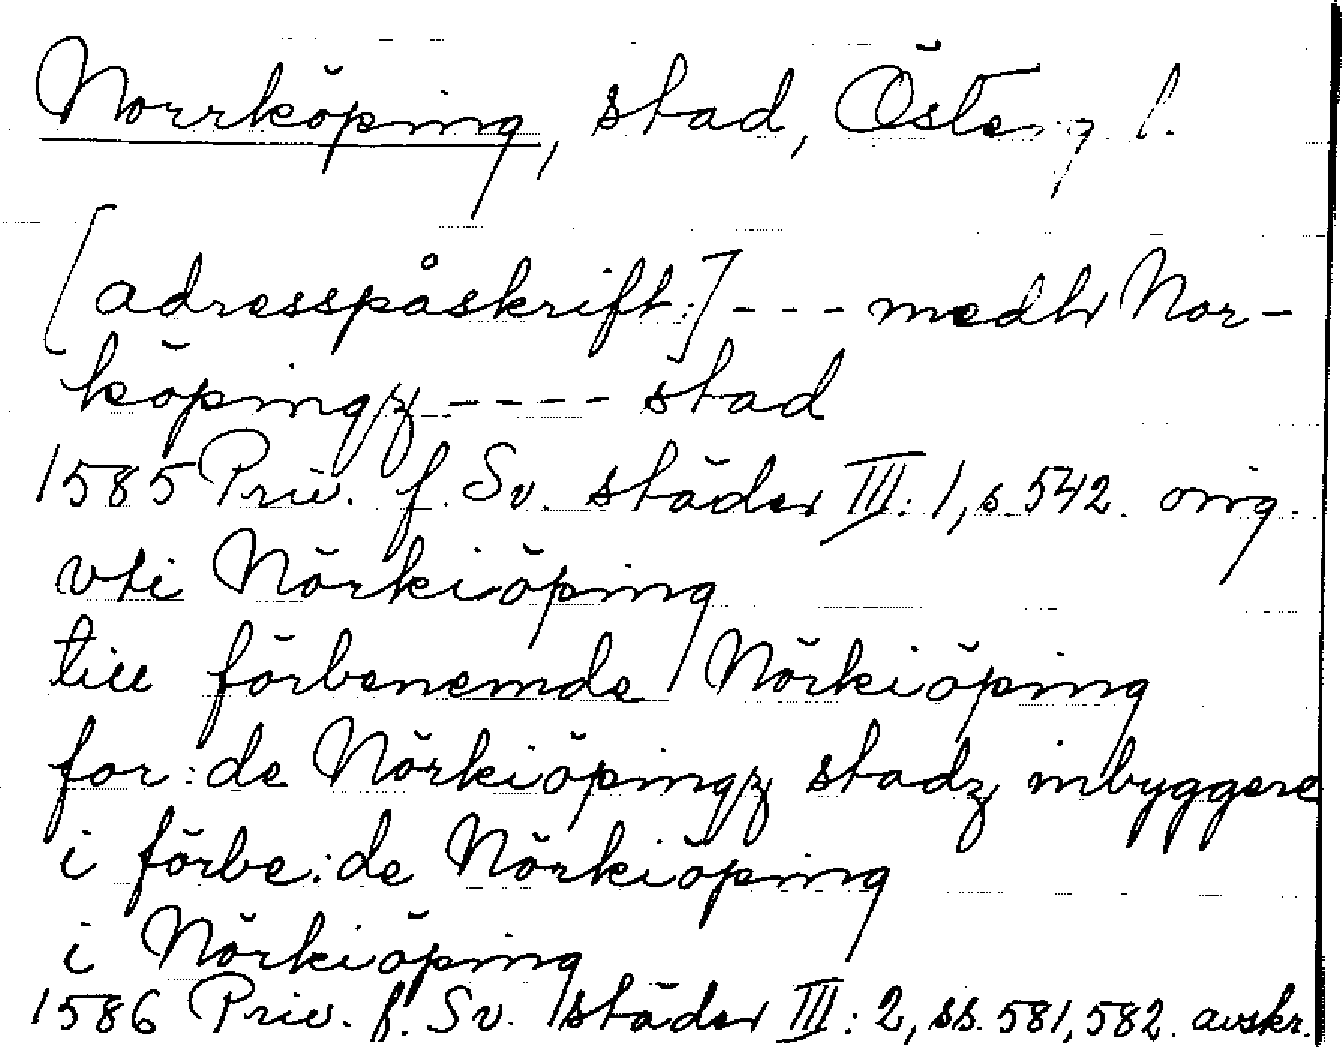 Norrköping, stad, Österg l.
[adresspåskrift:] --- medh Nor-
köpingz ---- stad
1585 Priv. f. Sv. städer III: 1, s. 542. orig.
vti Nörkiöping
till förbenemde Nörkiöping
for:de Nörkiöpingz stadz inbyggere
i förbe:de Nörkiöping
i Nörkiöping
1586 Priv. f. Sv. städer III: 2, ss. 581, 582. avskr.